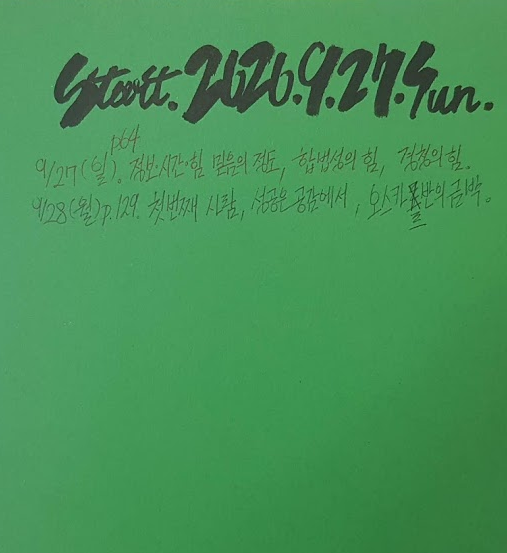 Start. 2026.9.27. Sun.
p64
9/27(일). 정보·시간·힘 믿음의 정도, 합법성의 힘, 경청의 힘.
9/28(월)p.129. 첫번째 시람, 성공은 공감에서, 오스카 반의 금박.